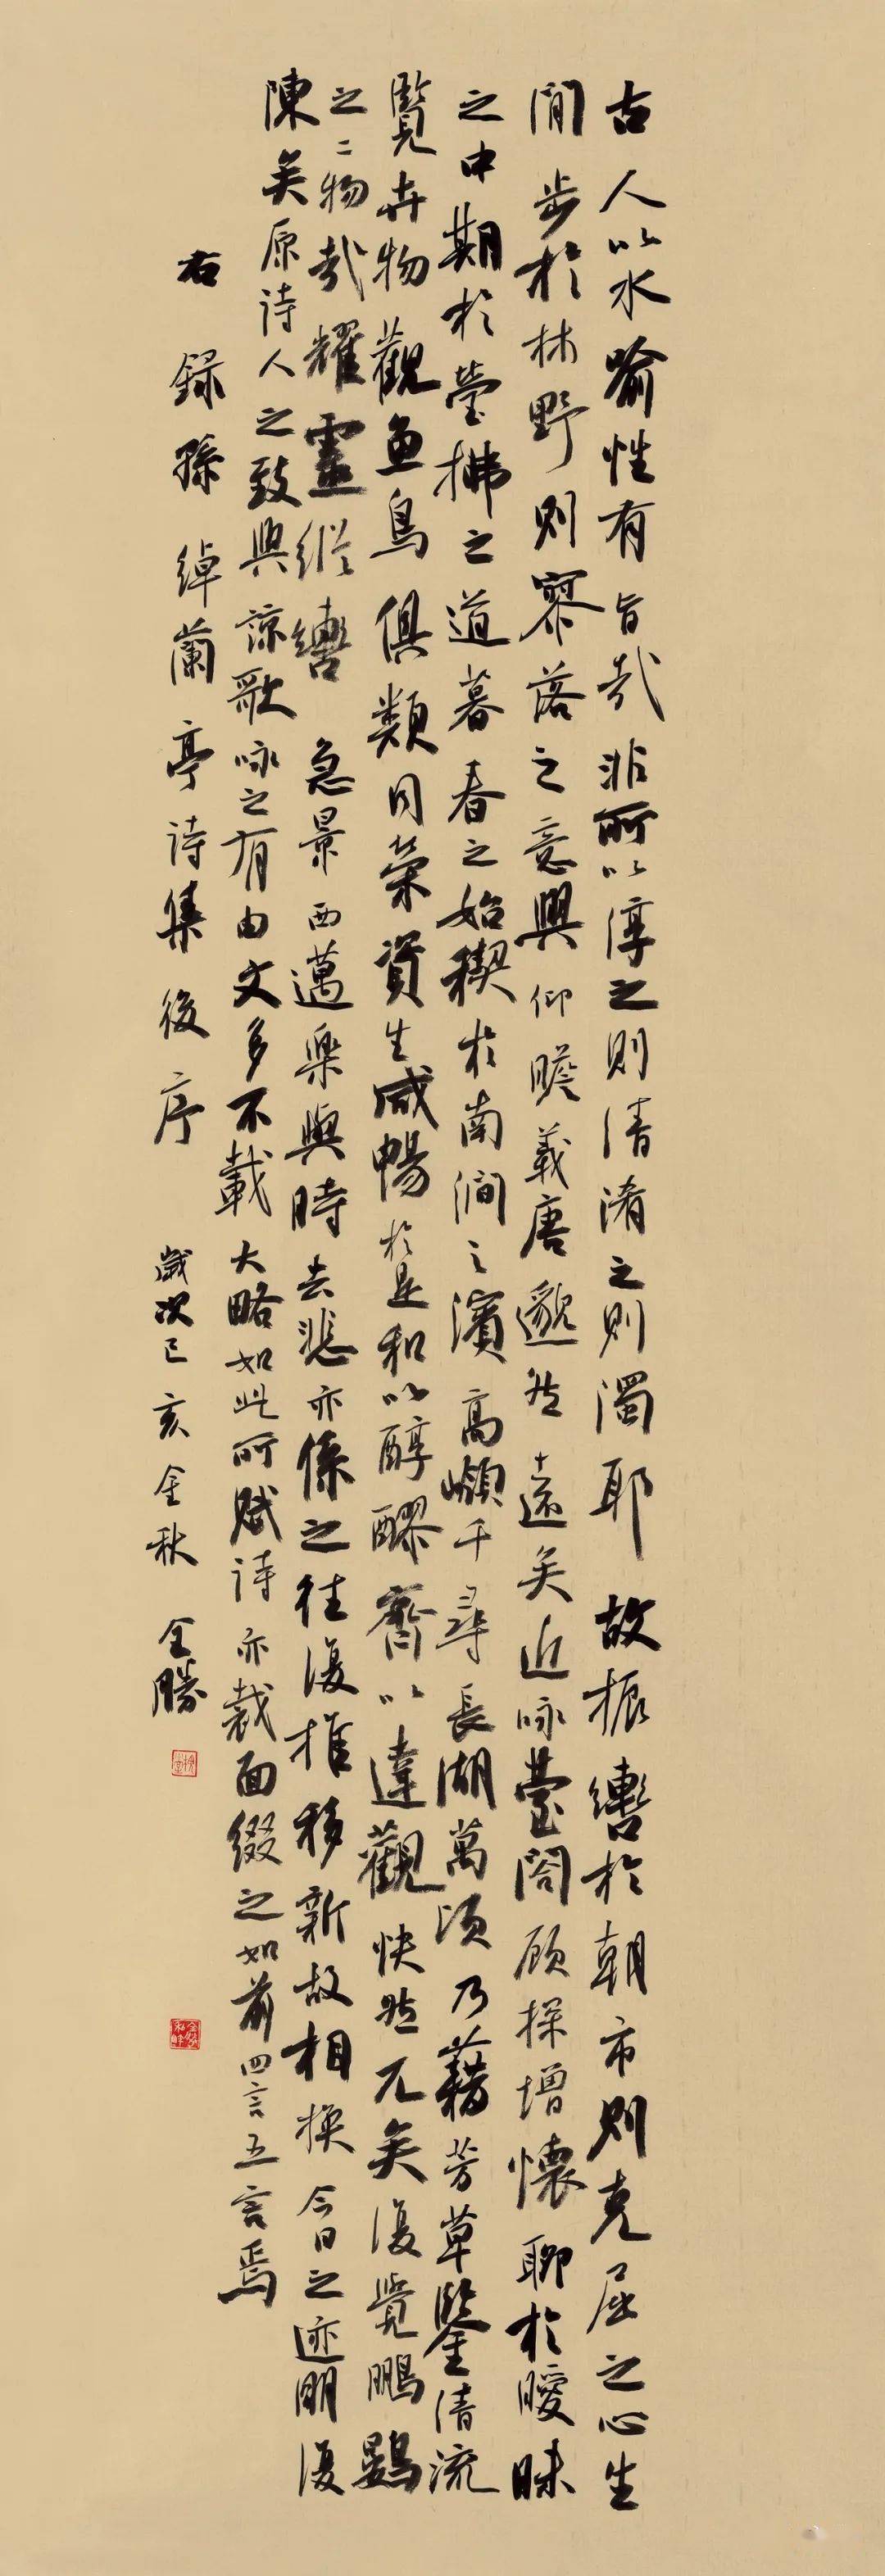 古人以水喻性有旨哉非所以淳之則清淆之則濁耶故振轡於朝市則克屈之心生
閒步於林野則寥落之意興仰瞻義唐邈然遠矣近咏臺閣顧探增懷聊於曖昧
之中期於瑩拂之道暮春之始禊於南澗之濱高嶺千尋長湖萬頃乃藉芳草鑒清流
覽卉物觀魚鳥俱類同榮資生咸暢於是和以醇醪齊以達觀快然兀矣復覺鵬鷃
之二物哉耀靈縱轡急景西邁樂與時去悲亦係之往復推移新故相換今日之迹明復
陳矣原詩人之致興諒歌咏之有由文多不載大略如此所賦詩亦裁而綴之如前四言五言焉
右錄孫綽蘭亭詩集後序 歲次己亥金秋 全勝